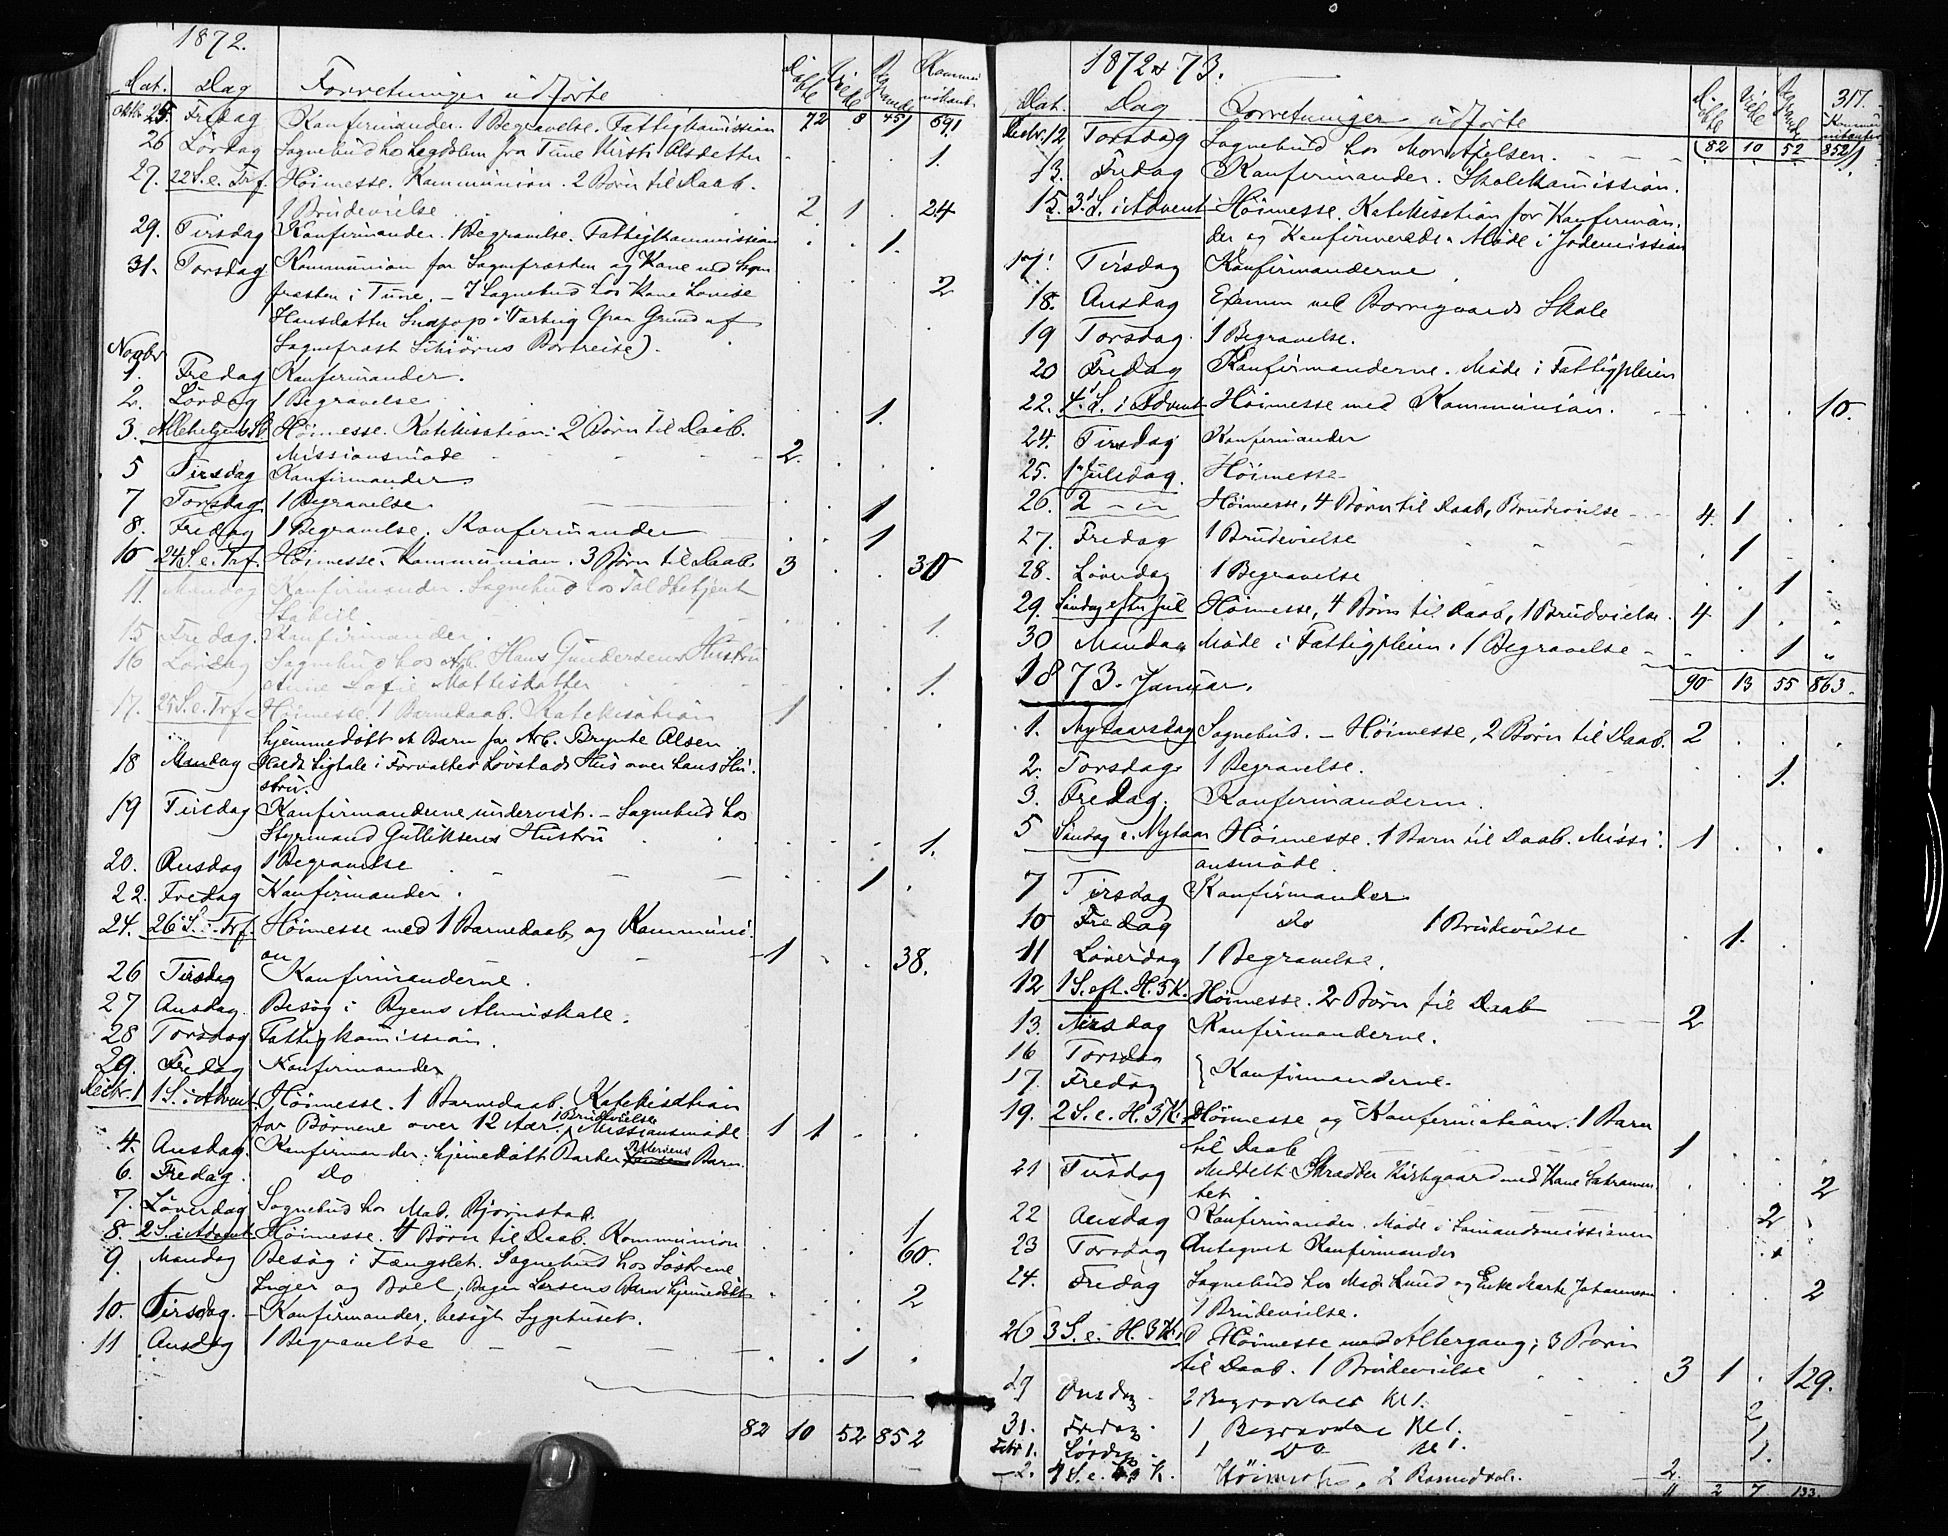 1872.
Dat. Dag Forretninger udførte Døbte Viede Begravede Kommunikanter
Oktbr 25. Fredag Konfirmander. 1 Begravelse. Fattigkomission 72 8 45 691
26 Lördag Sognebud hos Legdslem fra Tune Kirsti Olsdatter 1.
27. 22 S. e. Trf. Höimesse. Kommunion. 2 Börn til Daab.
1 Brudevielse 2 1 . 24
29. Tirsdag Konfirmander. 1 Begravelse. Fattigkommission 1.
31. Torsdag Kommunion for Sognepresten og Kone ved Sogne
presten i Tune. – Sognebud hos Kone Lovise 2
Hansdatter i Varteig (paa Grund af
Sogneprest Schiörns Bortreise).
Novbr
1. Fredag Konfirmander.
2. Lördag 1 Begravelse 1.
3. Allehelgens S. Höimesse. Katekisation. 2 Börn til Daab.
Missionsmöde 2.
5 Tirsdag Konfirmander
7 Torsdag 1 Begravelse 1
8. Fredag 1 Begravelse. Konfirmander 1
10 24 S. e. Trf. Höimesse. Kommunion. 3 Börn til Daab. 3 . . 30
11. Mandag Konfirmander. Sognebud hos Toldbetjent
1.
15 Fredag. Konfirmander.
16 Lördag Sognebud hos Arb. Hans Gundersens Hustru
Anne Sofie Mattisdatter 1.
17. 25 S. e. Trf. Höimesse. 1 Barnedaab. Katekisation 1
hjemmedöbt et Barn for Arb. Brynte Olsen
18 Mandag Holdt Ligtale i Forvalter Lövstads Hus over hans Hu-
stru.
19 Tirsdag Konfirmanderne undervist. – Sognebud hos
Styrmand Gulliksens Hustru 1.
20. Onsdag 1 Begravelse 1
22. Fredag Konfirmander.
24. 26 S. e. Trf. Höimesse med 1 Barnedaab og Kommuni-
on 1 . . 38.
26 Tirsdag Konfirmanderne.
27 Onsdag. Besög i Byens Almuskole.
28 Torsdag Fattigkomission.
29. Fredag Konfirmander
Decbr. 1 1 S. i Advent. Höimesse. 1 Barnedaab. Katekisation
for Börnene over 12 Aar. 1 Brudevielse Missionsmöde 1 1
4. Onsdag. Konfirmander. hjemedöbt Barber Pettersens Barn.
6. Fredag. Do
7. Löverdag Sognebud hos Mad. Bjørnstad. 1
8. 2 S. i Advent Höimesse. 4 Börn til Daab. Kommunion 60.
9. Mandag Besög i Fængslet. Sognebud hos Söstrene
Inger og Boel; Bager Larsens Barn hjemedöbt 2
10. Tirsdag. – Konfirmander, besögt Sygehuset.
11 Onsdag 1 Begravelse 1
82 10 52 852
1872 & 73.
317.
Dat. Dag Forretninger udförte Döbte Viede Begravede Kommunikanter
82 10 52 852
Decbr. 12. Torsdag Sognebud hos Mon Axelsen. 1.
13. Fredag Konfirmander. Skolekomission.
15. 3. S. i Advent Höimesse. Katekisation for Konfirman-
der og Konfirmerede. Möde i Jødemission
17. Tirsdag Konfirmanderne
18. Onsdag Examen ved Borregaards Skole
19 Torsdag. 1 Begravelse.
20 Fredag Konfirmanderne. Möde i Fattigpleien
22. 4. S. i Advent Höimesse med Kommunion. 10.
24. Tirsdag Konfirmander
25. 1. Juledag. Höimesse
26. 2 – „ – Höimesse, 4 Börn til Daab, Brudevielse 4. 1
27. Fredag 1 Brudevielse 1
28. Löverdag 1 Begravelse 1
29. Söndag efter Jul Höimesse, 4 Börn til Daab, 1 Brudvielse. 4 1
30 Mandag Möde i Fattigpleien. 1 Begravelse 1
1873. Januar. 90 13 55 863.
1. Nytaarsdag Sognebud. – Höimesse, 2 Börn til Daab. 2
2. Torsdag 1 Begravelse. 1.
3. Fredag. Konfirmanderne.
5 Söndag e. Nytaar Höimesse. 1 Barn til Daab. Missi- 1
onsmöde.
7 Tirsdag Konfirmander
10 Fredag do 1 Brudevielse 1.
11 Löverdag 1 Begravelse.
12 1 S. eft. H. 3 K. Höimesse. 2 Börn til Daab 2
13. Tirsdag Konfirmanderne.
16 Torsdag
17. Fredag } Konfirmanderne.
19. 2 S. e. H. 3 K. Höimesse og Konfirmation. 1 Barn
til Daab 1
21 Tirsdag Meddelt Skrædder Kirkgaard med Kone Sakramen-
tet 2
22 Onsdag Konfirmander. Möde i Sömandsmissionen 2
23 Torsdag Antegnet Konfirmander
24. Fredag Sognebud hos Mad. Lund og Enke Marte Johannesen 2
1 Brudevielse.
26 3 S. e. H. 3 K. Höimesse med Altergang; 3 Börn
til Daab. 1 Brudevielse 3 1 . 129.
29 Onsdag. 2 Begravelser Kl 1. 2
31. Fredag. 1 Begravelse Kl 1. 1
Febr 1. Lördag – 1 Do Kl 1. 1.
– 2. 4 S. e. H 3 K. Höimesse, 2 Barnedaab. 2.
11 2 7 133